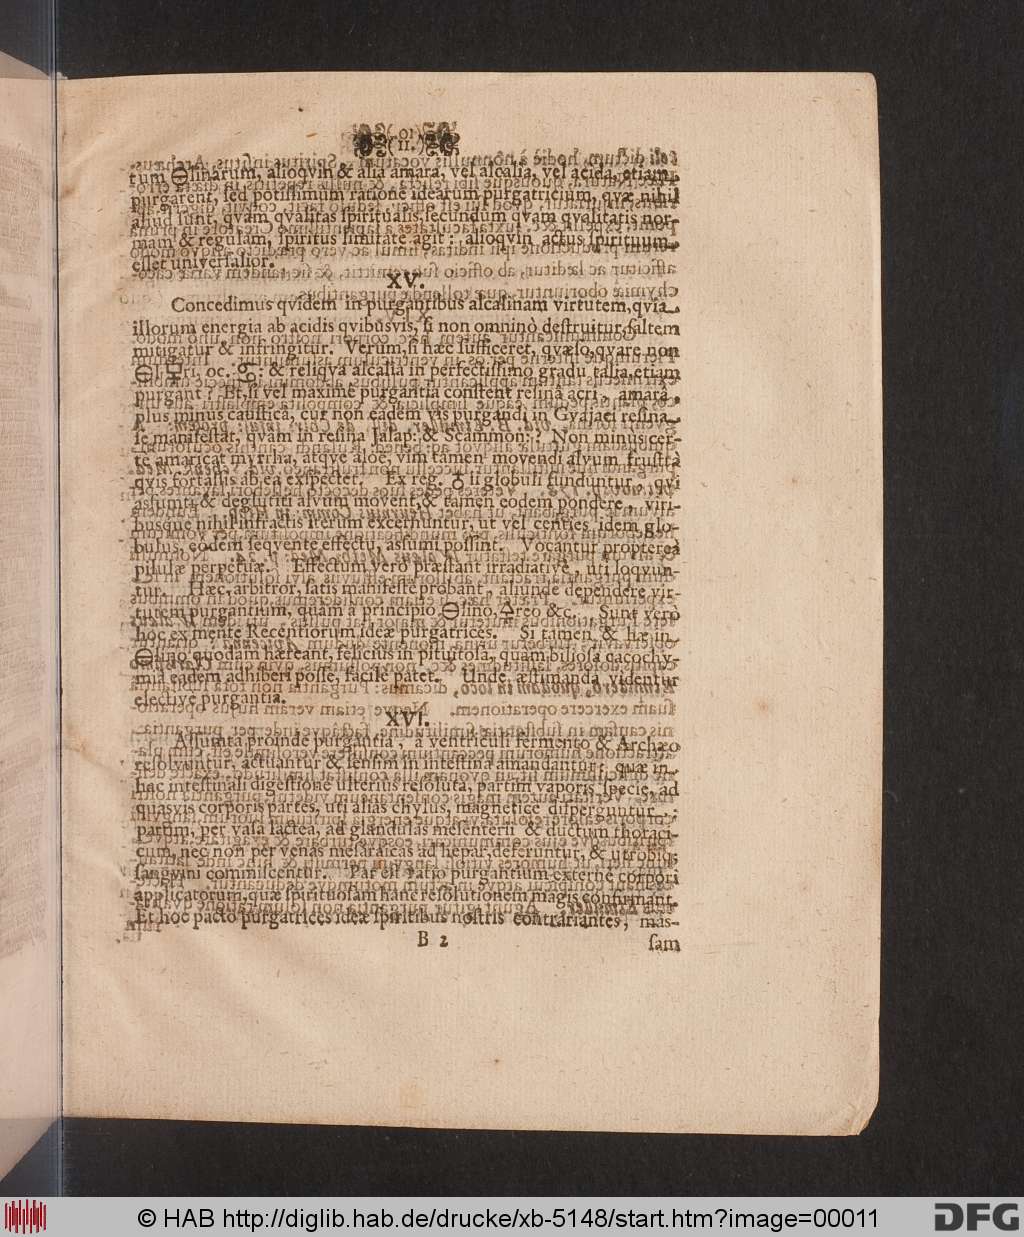 )11.(
tum 🜔linarum, alioqvin & alia amara, vel alcalia, vel acida, etiam
purgarent, sed potissimum ratione idearum purgatricium, qvæ nihil
aliud sunt, qvàm qvalitas spiritualis, secundum qvam qvalitatis nor-
mam & regulam, spiritus similate agit: alioqvin actus spirituum
esset universalior.
XV.
Concedimus qvidem in purgantibus alcalinam virtutem, qvia
illorum energia ab acidis qvibusvis, si non omninò destruitur, saltem
mitigatur & infringitur. Verum, si hæc sufficeret, qvæso, qvare non
🜔l. ri, oc. : & reliqva alcalia in perfectissimo gradu talia, etiam
purgant? Et, si vel maximè purgantia constent resinâ acri, amarâ,
plus minus causticâ, cur non eadem vis purgandi in Gvajaci resina
se manifestat, qvàm in resina Jalap: & Scammon:? Non minus cer-
tè amaricat myrrha, atqve aloë, vim tamen movendi alvum frustrà
qvis fortassis ab ea exspectet. Ex reg. ♁ ii globuli funduntur, qvi
assumti & deglutiti alvum movent, & tamen eodem pondere, viri-
busque nihil infractis iterum excernuntur, ut vel centies idem glo-
bulus, eodem seqvente effectu, assumi possint. Vocantur proptereà
pilulæ perpetuæ. Effectum verò præstant irradiativè, uti loqvun-
tur. Hæc, arbitror, satis manifestè probant, aliunde dependere vir-
tutem purgantium, quàm à principio 🜔lino, 🜍reo &c. Sunt verò
hoc ex mente Recentiorum ideæ purgatrices. Si tamen & hæ in
🜔lino quodam hæreant, felicius in pituitosa, quàm biliosa cacochy-
mia eadem adhiberi posse, facilè patet. Unde æstimanda videntur
electivè purgantia.
XVI.
Assumta proinde purgantia, à ventriculi fermento & Archæo
resolvuntur, actuantur & sensim in intestina amandantur: quæ in
hac intestinali digestione ulterius resoluta, partim vaporis specie, ad
quasvis corporis partes, uti aliàs chylus, magneticè disperguntur:
partim, per vasa lactea, ad glandulas mesenterii & ductum thoraci-
cum, nec non per venas mesaraicas ad hepar, deferuntur, & utrobiq;
sangvini commiscentur. Par est ratio purgantium externè corpori
applicatorum, quæ spirituosam hanc resolutionem magis confirmant.
Et hoc pacto purgatrices ideæ spiritibus nostris contrariantes, mas-
B 2 sam
© HAB http://diglib.hab.de/drucke/xb-5148/start.htm?image=00011
DFG